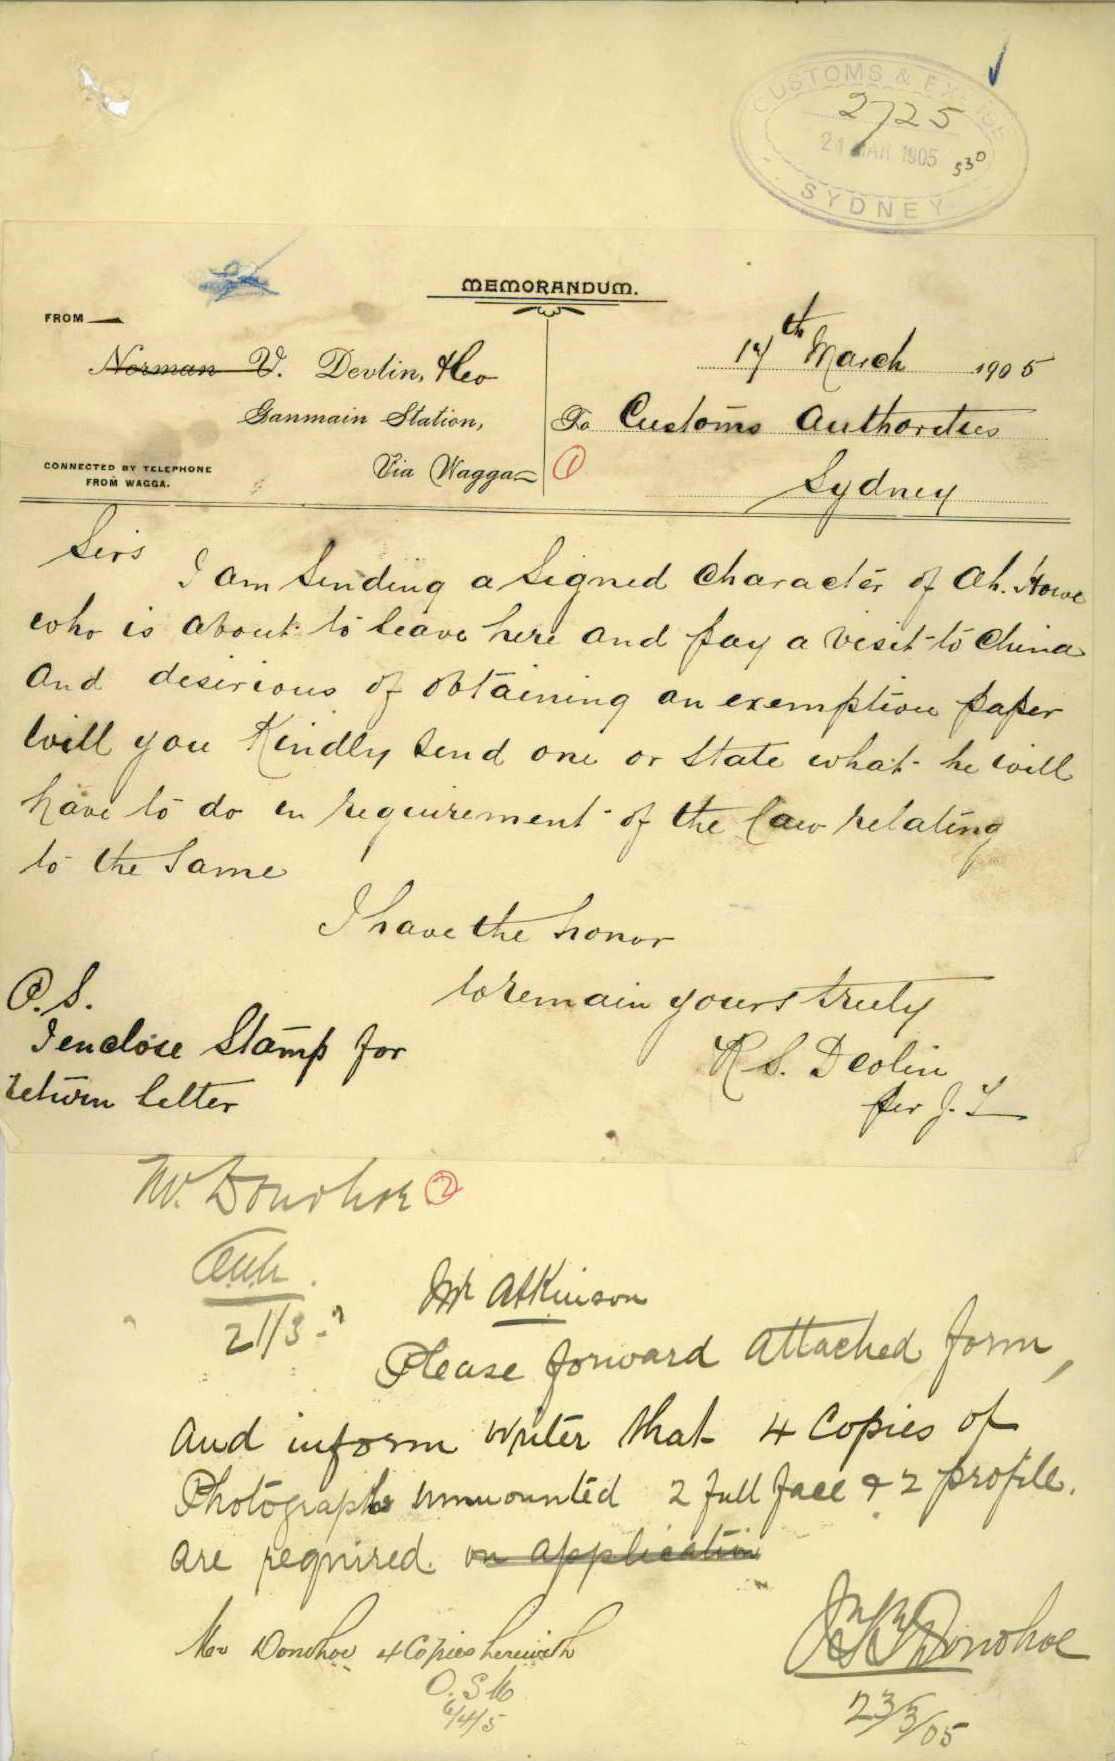 CUSTOMS & EXCISE
2725
21 MAR 1905
530
SYDNEY
MEMORANDUM.
FROM
Norman V. Devlin, Heo
Ganmain Station,
Via Wagga
CONNECTED BY TELEPHONE
FROM WAGGA.
17th March 1905
To Customs Authorities
1
Sydney
Sirs
I am Sending a Signed Character of Ah. Howe
who is about to leave here and pay a visit to China
and desirious of obtaining an exemption paper
Will you Kindly Send one or State what he will
have to do in requirement of the law relating
to the Same
I have the honor
to remain yours truly
R S. Devlin
per J. T
P.S.
I enclose Stamp for
return letter
Mr. Donohoe 2
21/3
Mr Atkinson
Please forward attached form,
and inform writer that 4 Copies of
Photographs unmounted 2 full face & 2 profile.
are required on application
Donohoe
23/3/05
Mr Donohoe 4 Copies herewith
O.S.M
6/4/5